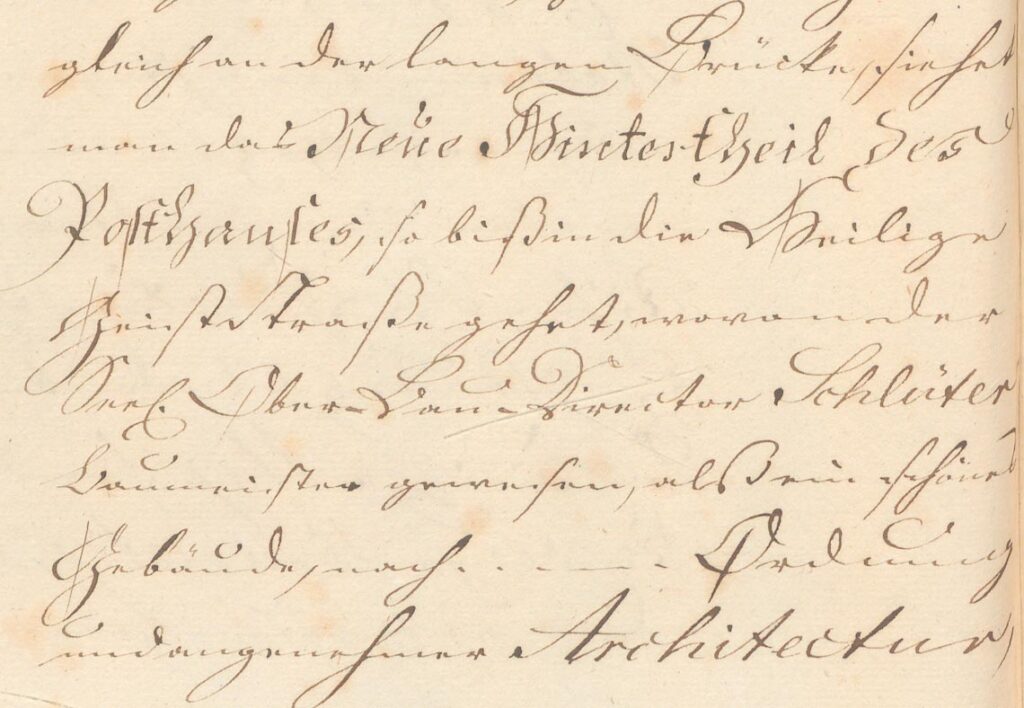 gleich an der langen Brücke, siehet
man das Neue Hintertheil des
Posthauses, so biß in die Heilige
Geist Straße gehet, wovon der
Seel. Ober-Bau-Director Schlüter
Baumeister gewesen, alß ein schönes
Gebäude, nach . . - - - Ordnung
und angenehmer Architectur,